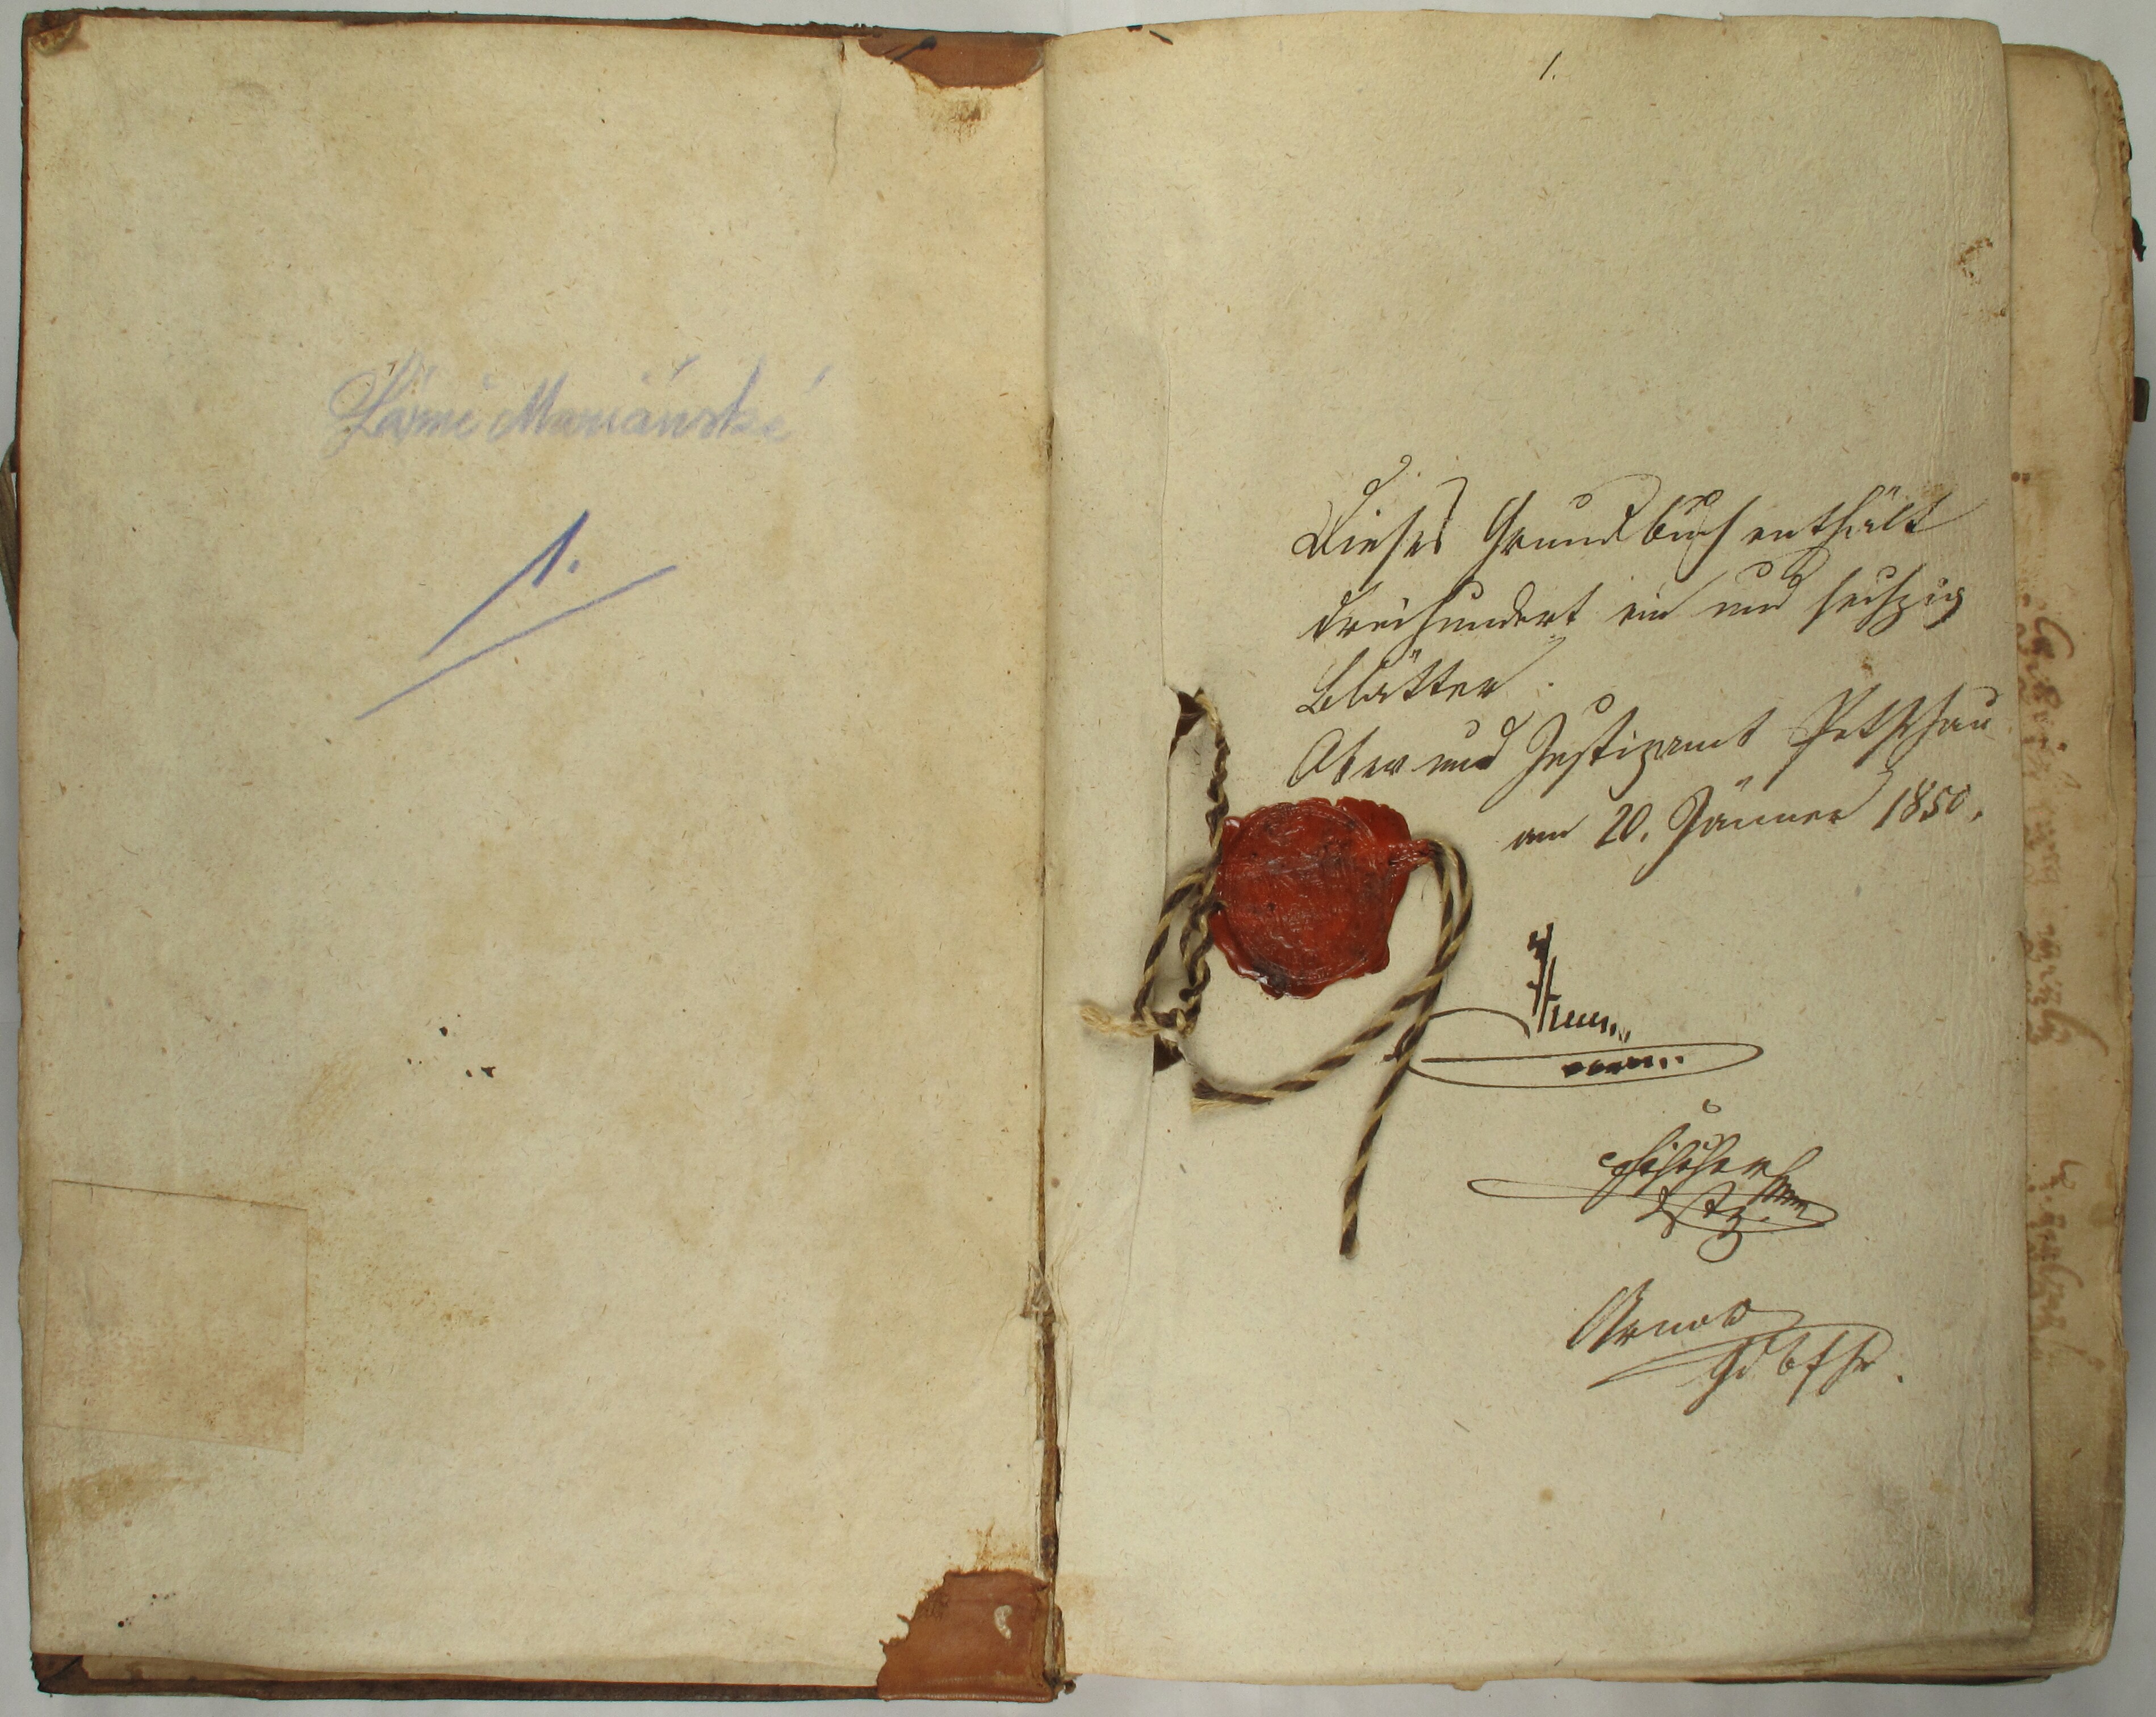 Lázně Mariánské
1.
1.
Dieses Grundbuch enthält
dreihundert ein und sechzig
Blätter.
Ober und Justizamt Petschau
am 20. Jänner 1850.
Fischer